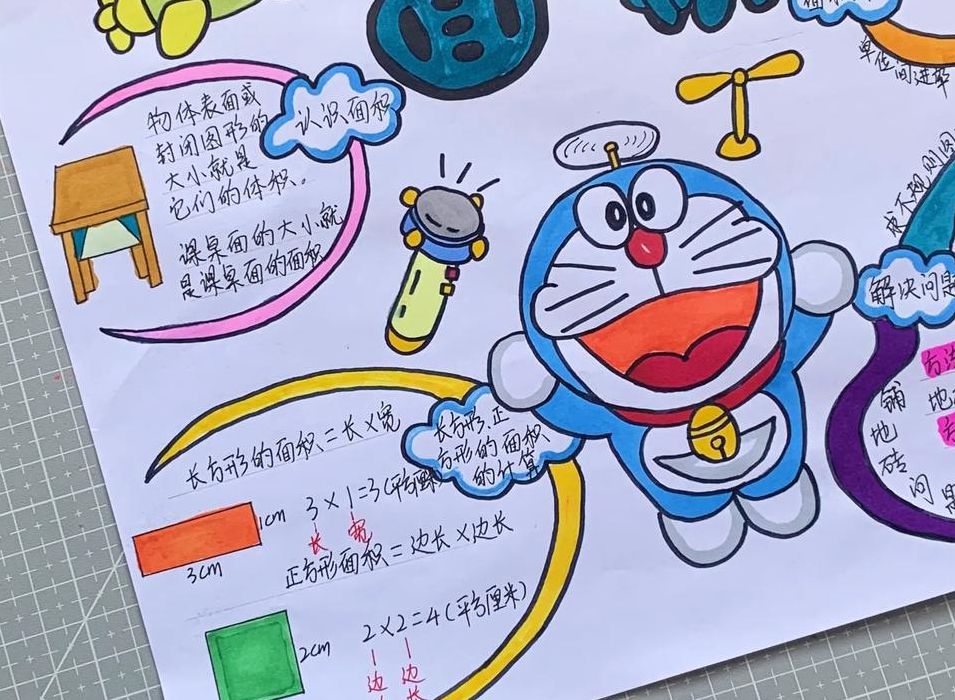 认识面积
物体表面或
封闭图形的
大小就是
它们的体积。
课桌面的大小就
是课桌面的面积
单位间进率
长方形.正
方形的面积
的计算
长方形的面积=长×宽
3×1=3(平方厘米)
长 宽
1cm
3cm
正方形面积=边长×边长
2×2=4(平方厘米)
2cm
边 边
长
解决问题
方法
铺
地
砖
问